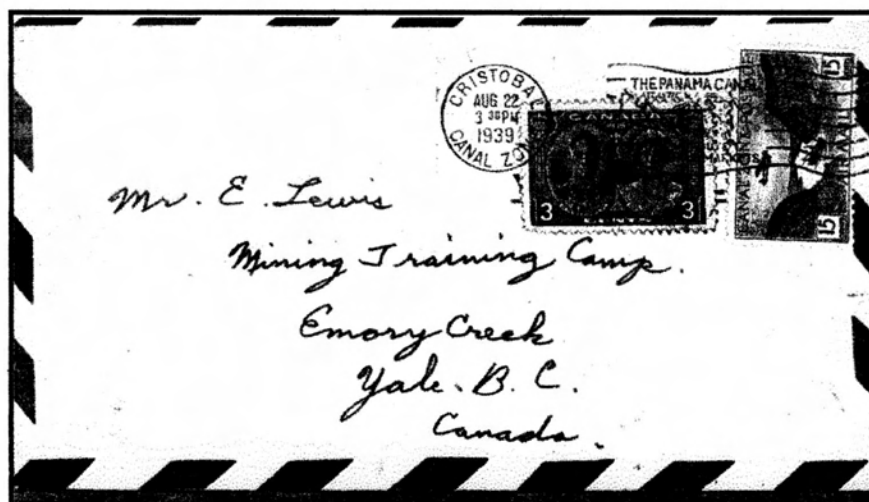 CRISTOBAL
AUG 22
3 30PM
1939
CANAL ZONE
THE PANAMA CANAL
CANADA
3 3
CANAL ZONE POSTAGE
15
15
Mr. E. Lewis
Mining Training Camp.
Emory Creek
Yale. B. C.
Canada.